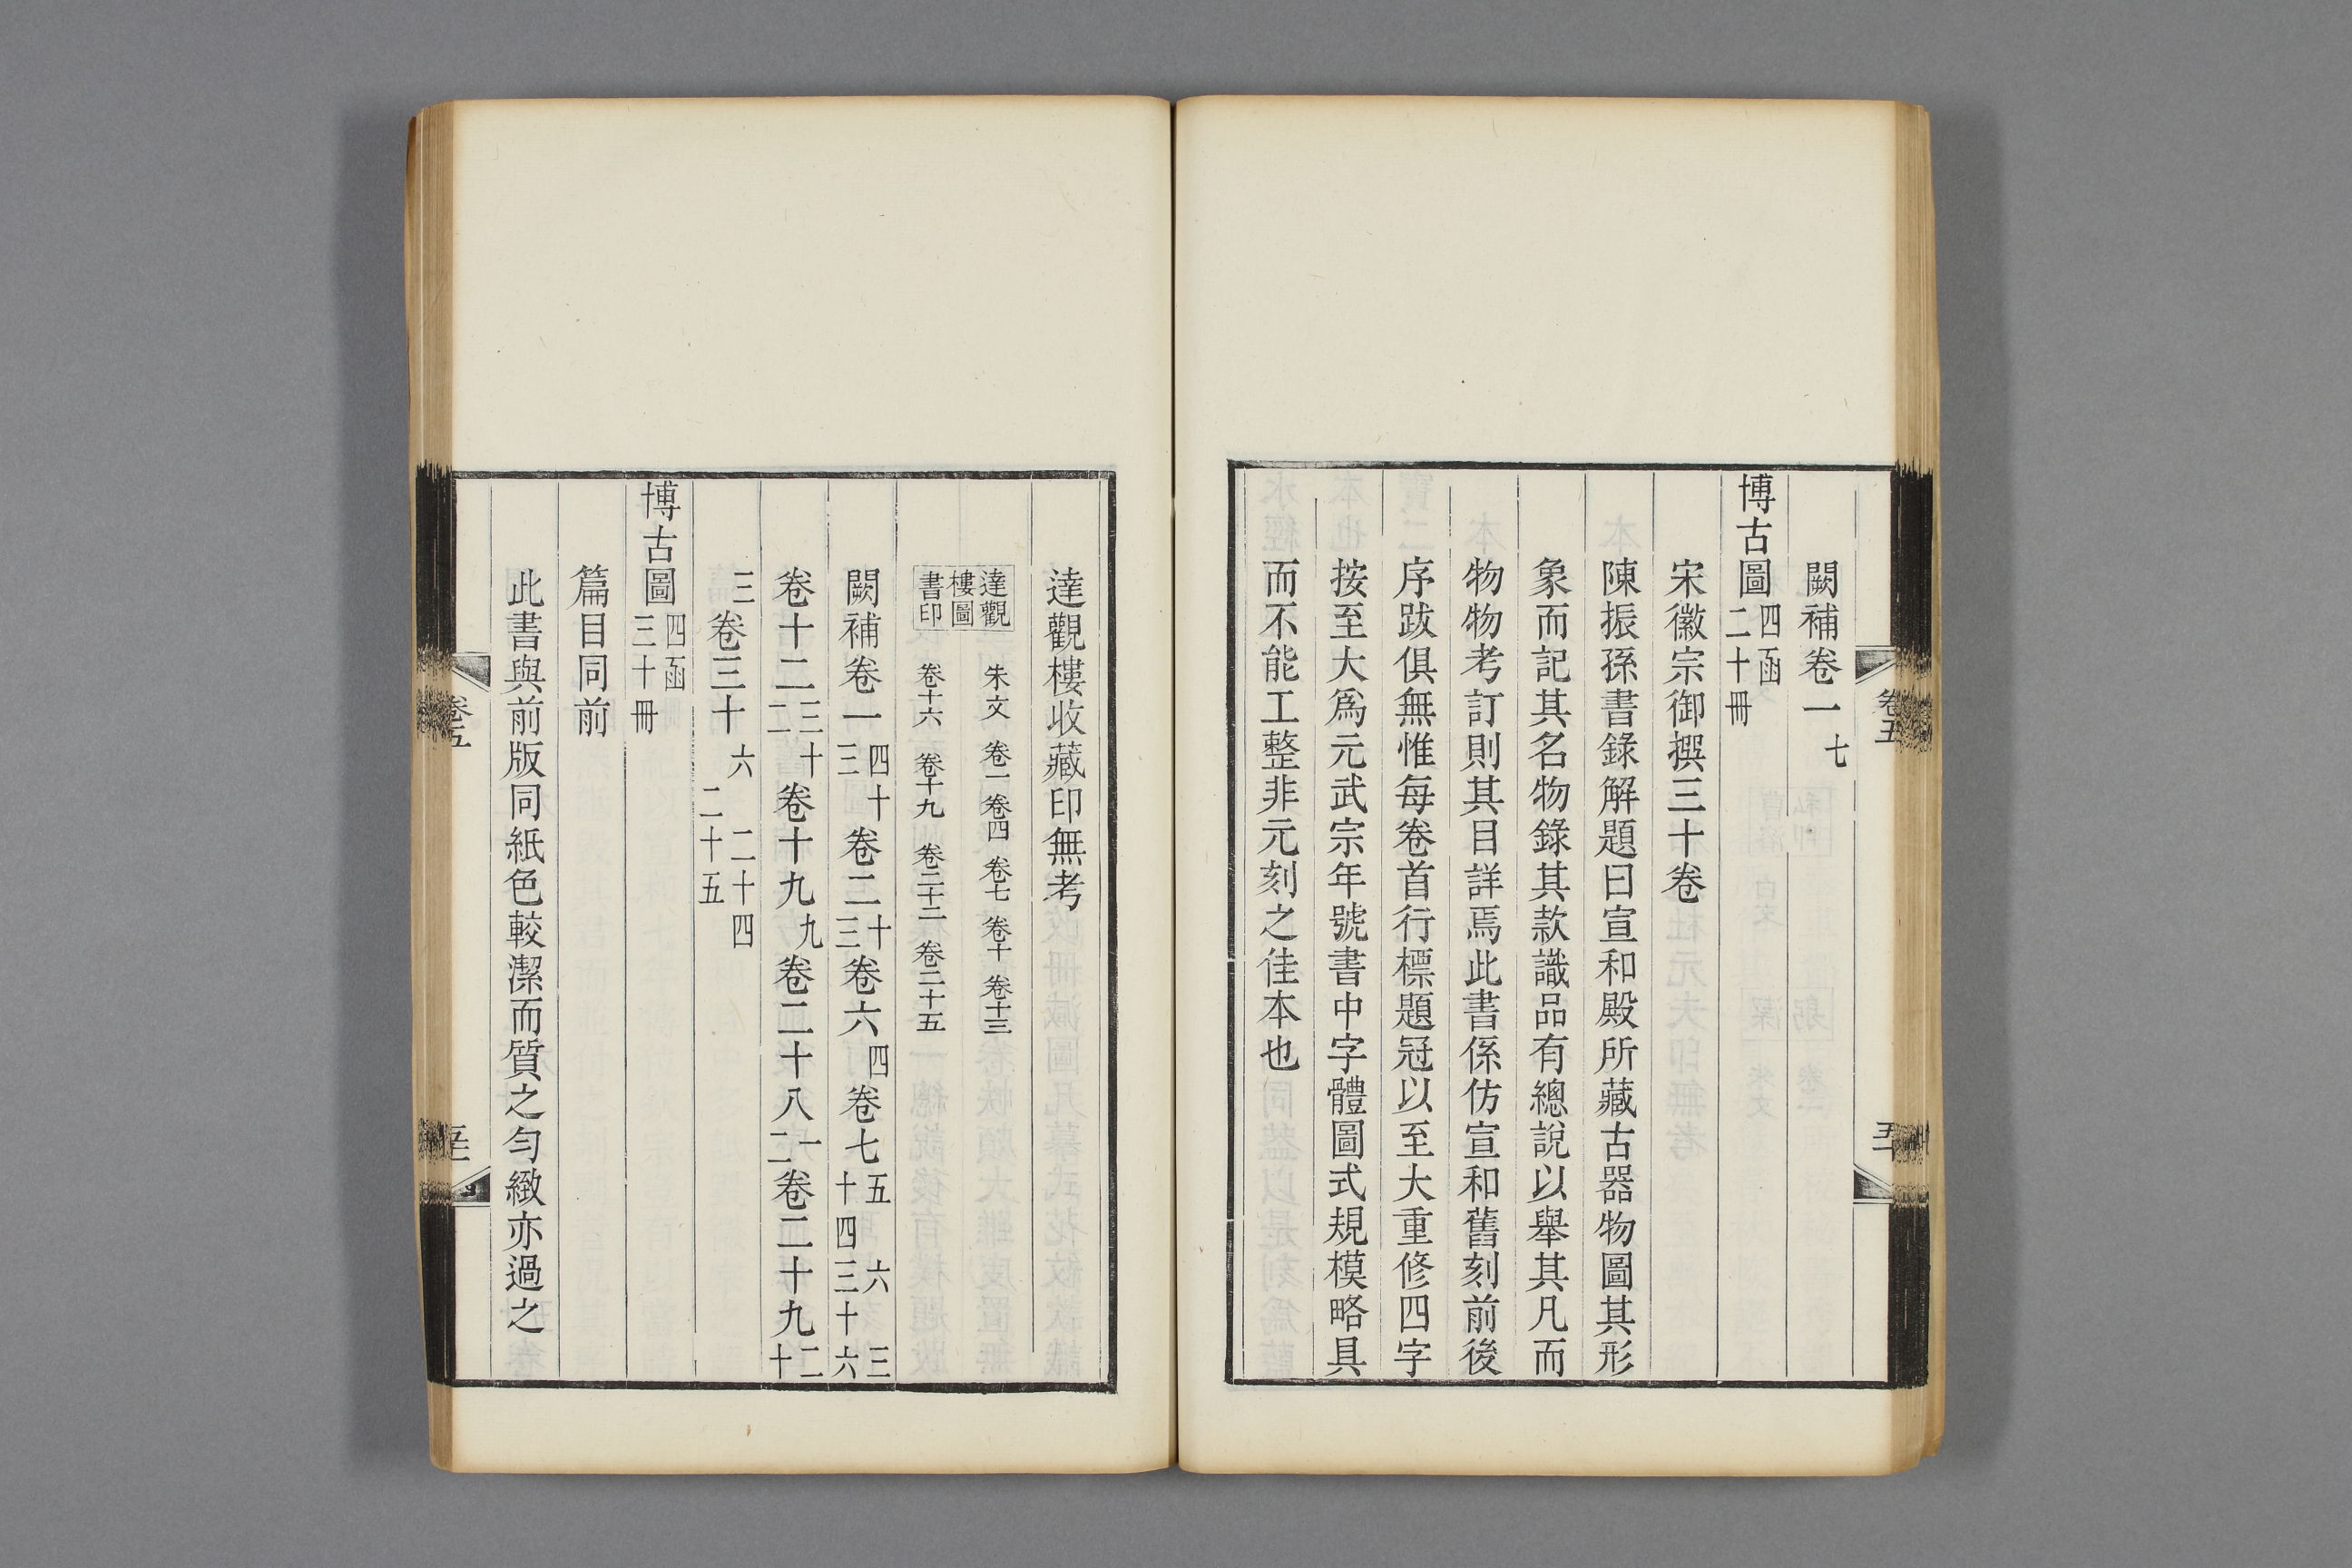 闕補卷一七
博古圖四函二十冊
宋徽宗御撰三十卷
陳振孫書錄解題曰宣和殿所藏古器物圖其形
象而記其名物錄其款識品有總說以舉其凡而
物物考訂則其目詳焉此書係仿宣和舊刻前後
序跋俱無惟每卷首行標題冠以至大重修四字
按至大為元武宗年號書中字體圖式規模略具
而不能工整非元刻之佳本也
卷五
達觀樓收藏印無考
達觀樓圖書印
朱文 卷一 卷四 卷七 卷十 卷十三
卷十六 卷十九 卷二十二 卷二十五
闕補卷一四十三卷二十三卷六四卷七五 六 三十四三十六
卷十二三十二卷十九九卷二十八一二卷二十九二十
三卷三十六 二十四二十五
博古圖四函三十冊
篇目同前
此書與前版同紙色較潔而質之勻緻亦過之
卷五